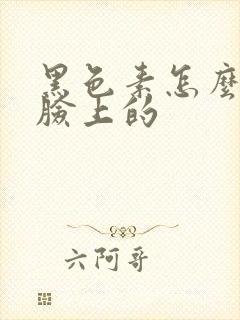 黑色素怎麼
臉上的
六阿哥